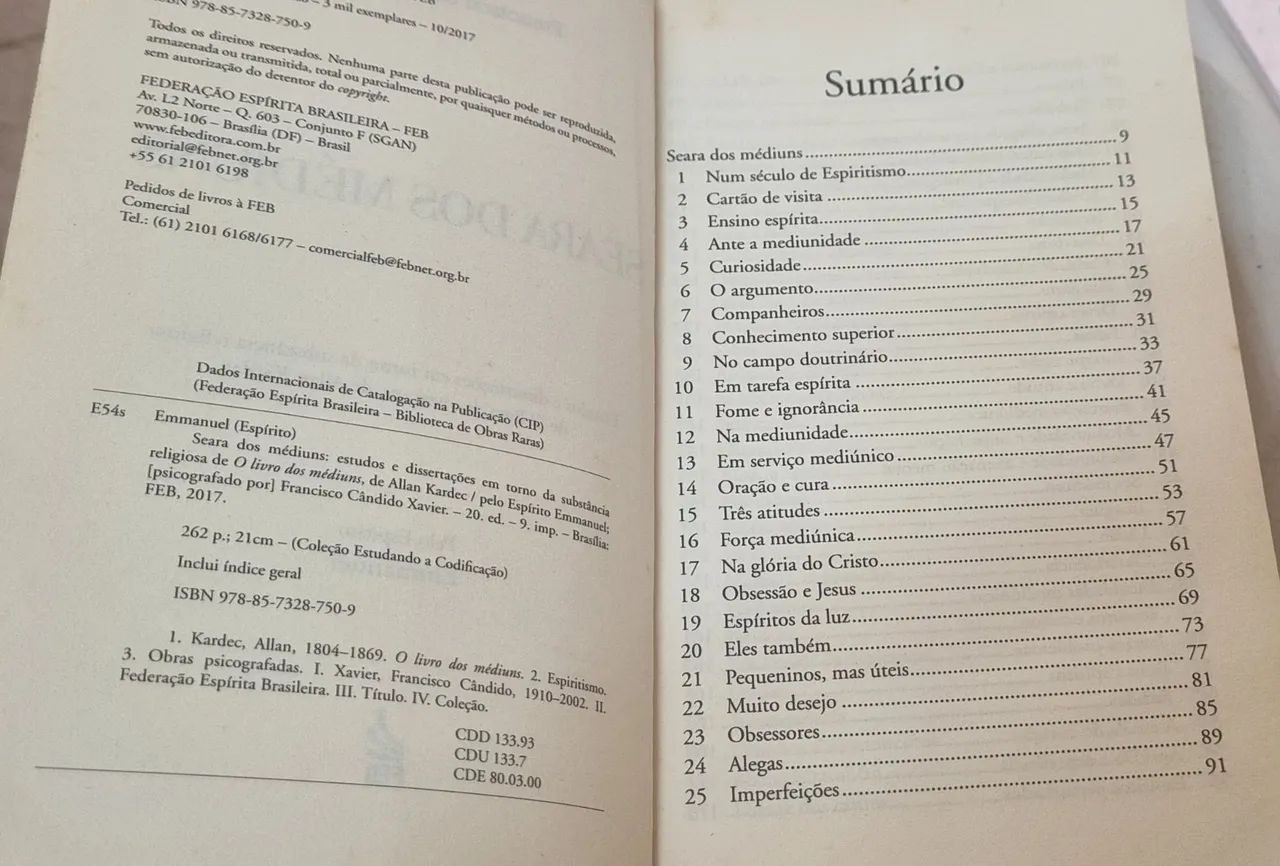 FEB
– 3 mil exemplares – 10/2017
ISBN 978-85-7328-750-9
Todos os direitos reservados. Nenhuma parte desta publicação pode ser reproduzida,
armazenada ou transmitida, total ou parcialmente, por quaisquer métodos ou processos,
sem autorização do detentor do copyright.
FEDERAÇÃO ESPÍRITA BRASILEIRA – FEB
Av. L2 Norte – Q. 603 – Conjunto F (SGAN)
70830-106 – Brasília (DF) – Brasil
www.febeditora.com.br
editorial@febnet.org.br
+55 61 2101 6198
Pedidos de livros à FEB
Comercial
Tel.: (61) 2101 6168/6177 – comercialfeb@febnet.org.br
Dados Internacionais de Catalogação na Publicação (CIP)
(Federação Espírita Brasileira – Biblioteca de Obras Raras)
E54s Emmanuel (Espírito)
Seara dos médiuns: estudos e dissertações em torno da substância
religiosa de O livro dos médiuns, de Allan Kardec / pelo Espírito Emmanuel;
[psicografado por] Francisco Cândido Xavier. – 20. ed. – 9. imp. – Brasília:
FEB, 2017.
262 p.; 21cm – (Coleção Estudando a Codificação)
Inclui índice geral
ISBN 978-85-7328-750-9
1. Kardec, Allan, 1804–1869. O livro dos médiuns. 2. Espiritismo.
3. Obras psicografadas. I. Xavier, Francisco Cândido, 1910–2002. II.
Federação Espírita Brasileira. III. Título. IV. Coleção.
CDD 133.93
CDU 133.7
CDE 80.03.00
Sumário
Seara dos médiuns 9
1 Num século de Espiritismo 11
2 Cartão de visita 13
3 Ensino espírita 15
4 Ante a mediunidade 17
5 Curiosidade 21
6 O argumento 25
7 Companheiros 29
8 Conhecimento superior 31
9 No campo doutrinário 33
10 Em tarefa espírita 37
11 Fome e ignorância 41
12 Na mediunidade 45
13 Em serviço mediúnico 47
14 Oração e cura 51
15 Três atitudes 53
16 Força mediúnica 57
17 Na glória do Cristo 61
18 Obsessão e Jesus 65
19 Espíritos da luz 69
20 Eles também 73
21 Pequeninos, mas úteis 77
22 Muito desejo 81
23 Obsessores 85
24 Alegas 89
25 Imperfeições 91